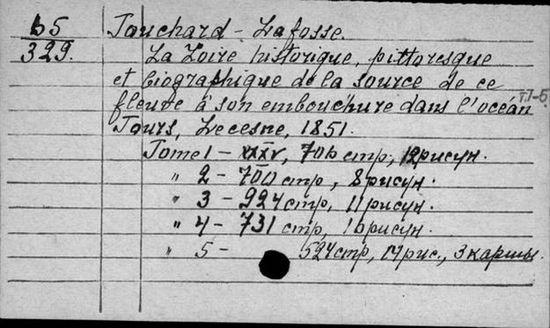 Б5 Touchard-Lafosse.
329. La Loire historique, pittoresque
et biographique de la source de ce
fleuve à son embouchure dans l'océan
т.1-5
Tours, Lecesne, 1851.
Tome 1 - XXXV, 706 стр., 12 рисун.
" 2 - 700 стр., 8 рисун.
" 3 - 924 стр., 11 рисун.
" 4 - 731 стр., 10 рисун.
" 5 - 524 стр., рис., 3 карты.